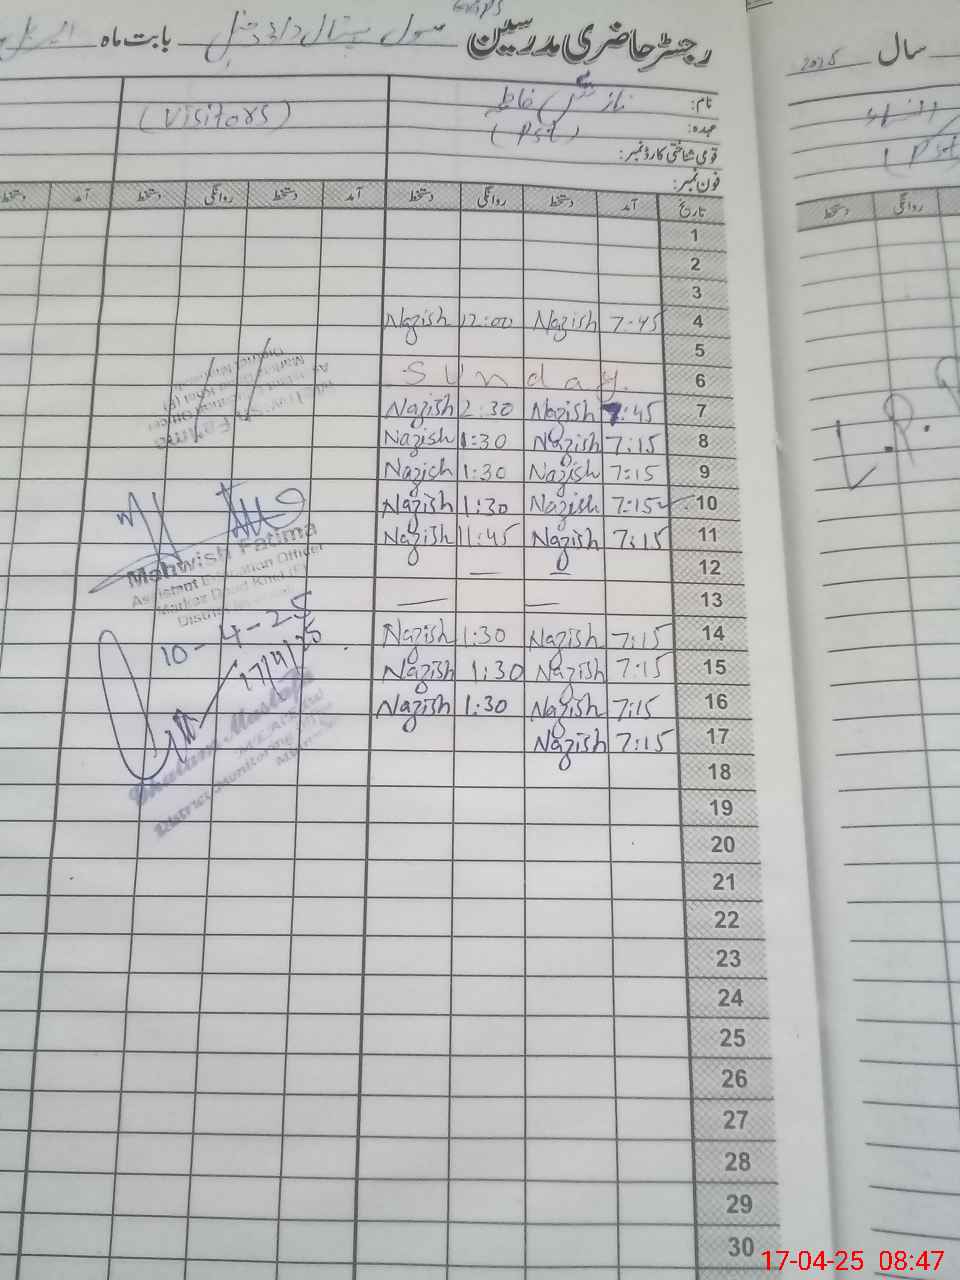 رجسٹر حاضری مدرسین
بابت ماہ
سال 2025
نام: نازش فاطمہ
عہدہ: (Pst)
قومی شناختی کارڈ نمبر:
فون نمبر:
(Visitors)
(Pst
تاریخ آمد دستخط روانگی دستخط آمد دستخط روانگی دستخط آمد
روانگی دستخط
1
2
3
4 7:45 Nazish 12:00 Nazish
5
6 Sunday.
7 7:45 Nazish 2:30 Nazish
8 7:15 Nazish 1:30 Nazish
9 7:15 Nazish 1:30 Nazish
10 7:15 Nazish 1:30 Nazish
11 7:15 Nazish 11:45 Nazish
12 — —
13 — —
14 7:15 Nazish 1:30 Nazish
15 7:15 Nazish 1:30 Nazish
16 7:15 Nazish 1:30 Nazish
17 7:15 Nazish
18
19
20
21
22
23
24
25
26
27
28
29
30
L.R.
Mahwish Fatima
Assistant Education Officer
10-4-25
17/4/25
17-04-25 08:47